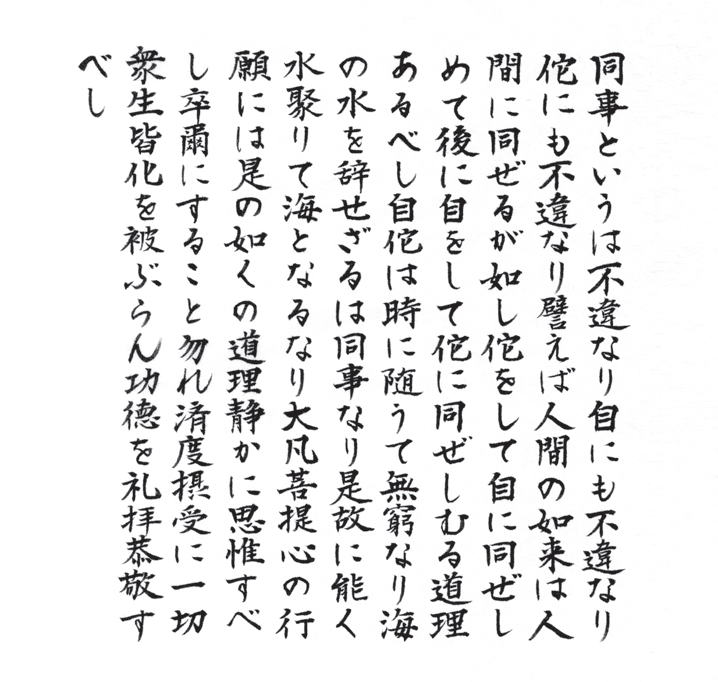 同事というは不違なり自にも不違なり
佗にも不違なり譬えば人間の如来は人
間に同ぜるが如し佗をして自に同ぜし
めて後に自をして佗に同ぜしむる道理
あるべし自佗は時に随うて無窮なり海
の水を辞せざるは同事なり是故に能く
水聚りて海となるなり大凡菩提心の行
願には是の如くの道理静かに思惟すべ
し卒爾にすること勿れ済度摂受に一切
衆生皆化を被ぶらん功徳を礼拝恭敬す
べし